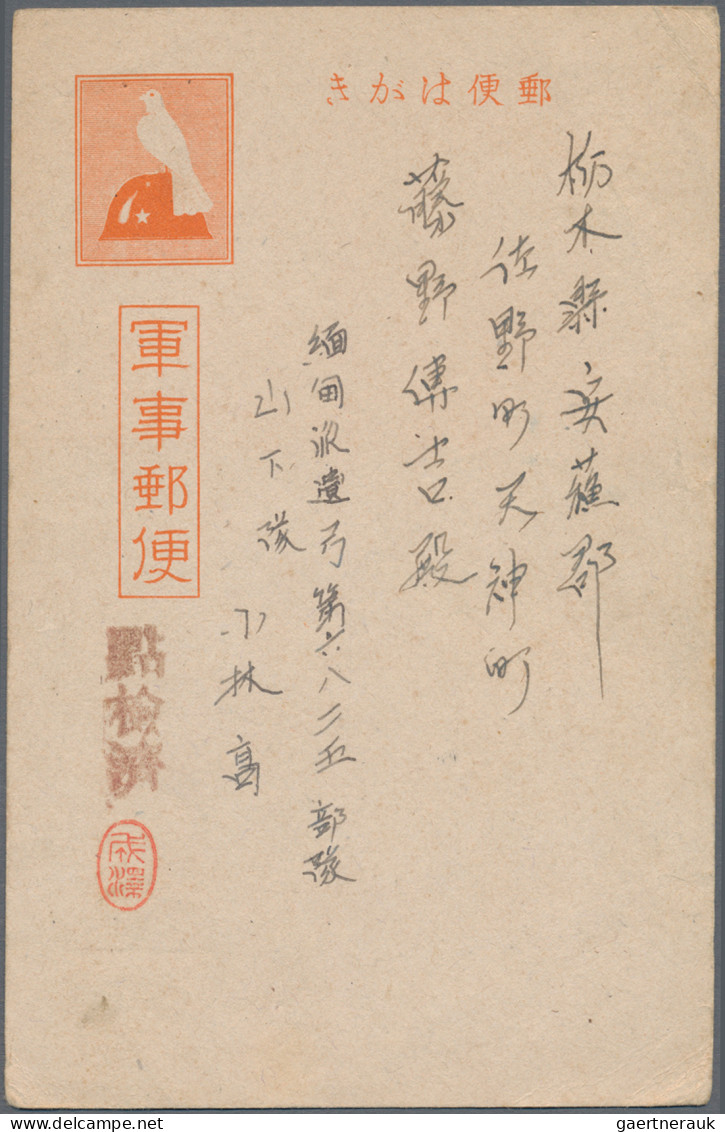 郵便はがき
栃木縣安蘓郡
佐野町天神町
藤野傳吉殿
緬甸派遣弓第六八二五部隊
山下隊 小林高
軍事郵便
點檢濟
gaertnerauk